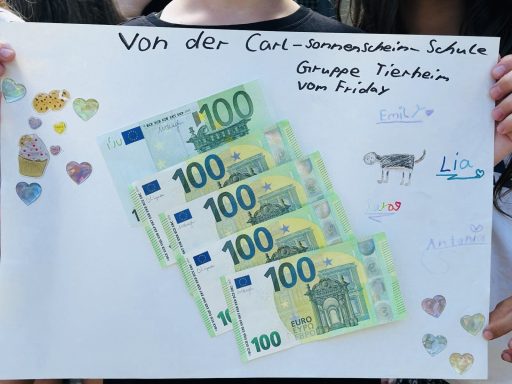 Von der Carl-Sonnenschein-Schule
Gruppe Tierheim
vom Friday
Emily
Lia
Antonia
100
100
100
100
100
100
EURO
ΕΥΡΩ
ЕВРО